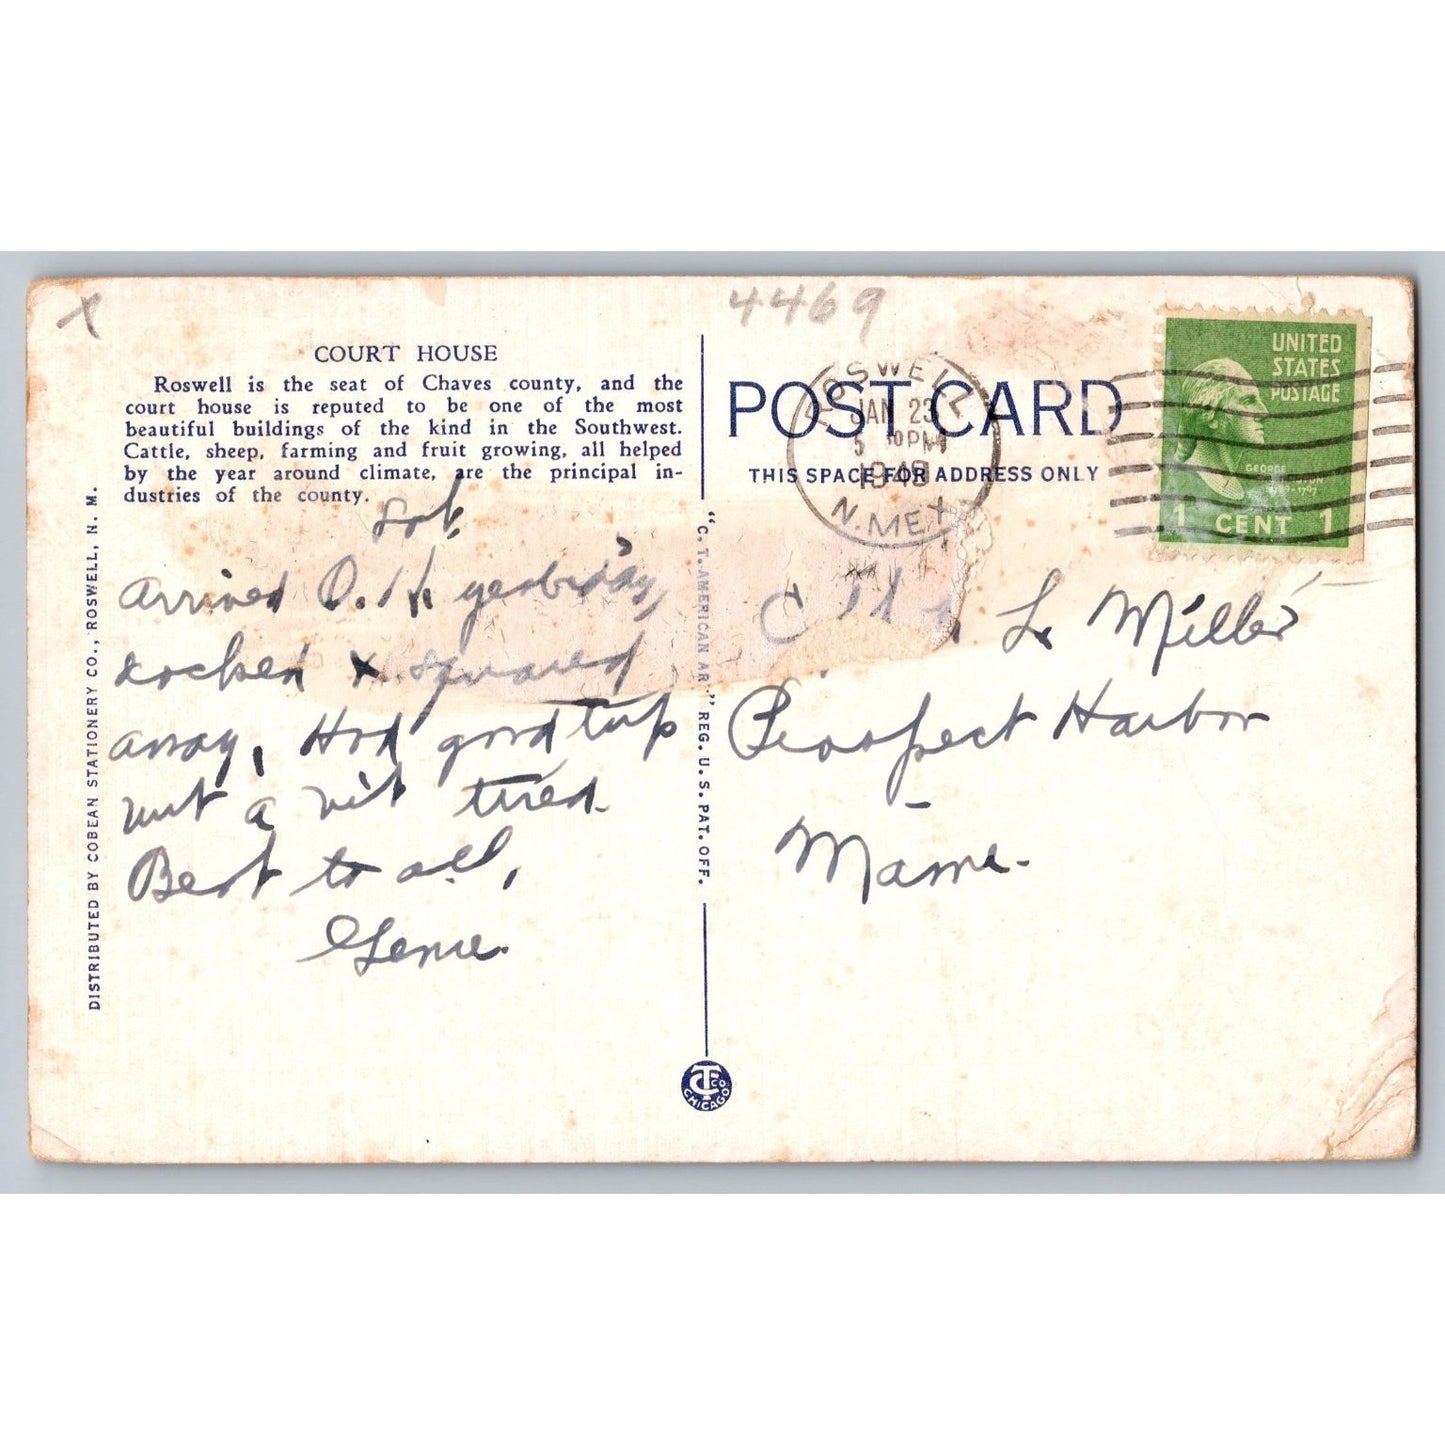 x
4469
COURT HOUSE
Roswell is the seat of Chaves county, and the
court house is reputed to be one of the most
beautiful buildings of the kind in the Southwest.
Cattle, sheep, farming and fruit growing, all helped
by the year around climate, are the principal in-
dustries of the county.
Sat.
Arrived O.K. yesterday,
& squared
away, Had good trip
but a bit tired.
Best to all,
DISTRIBUTED BY COBEAN STATIONERY CO., ROSWELL, N. M.
"C. T. AMERICAN ART" REG. U. S. PAT. OFF.
CT CO. CHICAGO
POST CARD
THIS SPACE FOR ADDRESS ONLY
ROSWELL
JAN 23
5 30PM
N. MEX
UNITED
STATES
POSTAGE
GEORGE
1 CENT 1
L. Miller
Prospect Harbor
Maine.